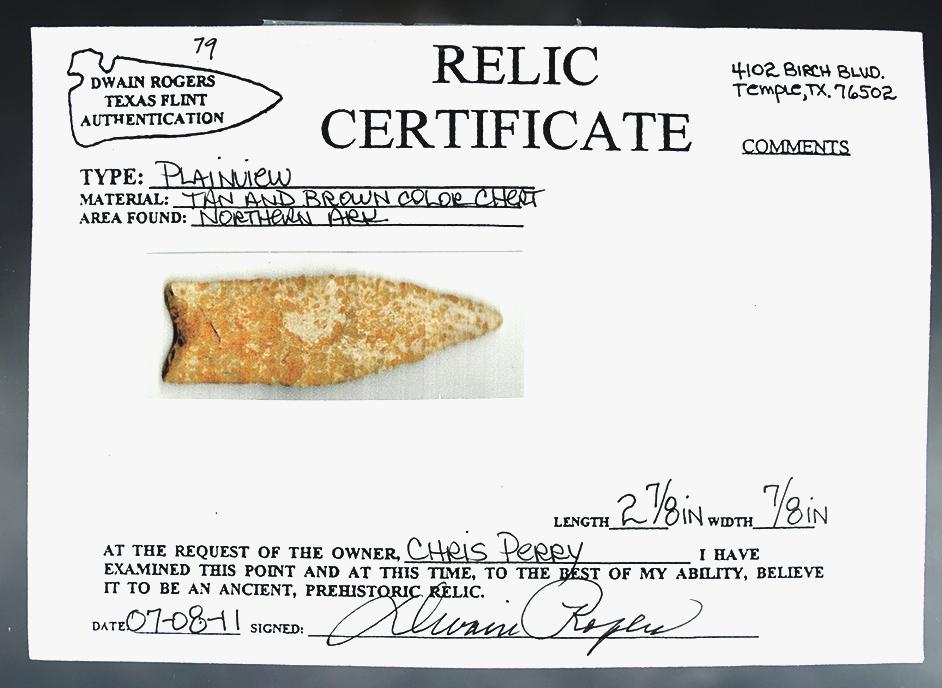 79
DWAIN ROGERS
TEXAS FLINT
AUTHENTICATION
RELIC
CERTIFICATE
4102 BIRCH BLVD.
Temple, TX. 76502
COMMENTS
TYPE: PLAINVIEW
MATERIAL: TAN AND BROWN COLOR CHERT
AREA FOUND: NORTHERN ARK
LENGTH 2 7/8 IN WIDTH 7/8 IN
AT THE REQUEST OF THE OWNER, CHRIS PERRY I HAVE
EXAMINED THIS POINT AND AT THIS TIME, TO THE BEST OF MY ABILITY, BELIEVE
IT TO BE AN ANCIENT, PREHISTORIC RELIC.
DATE: 07-08-11 SIGNED: Dwain Rogers